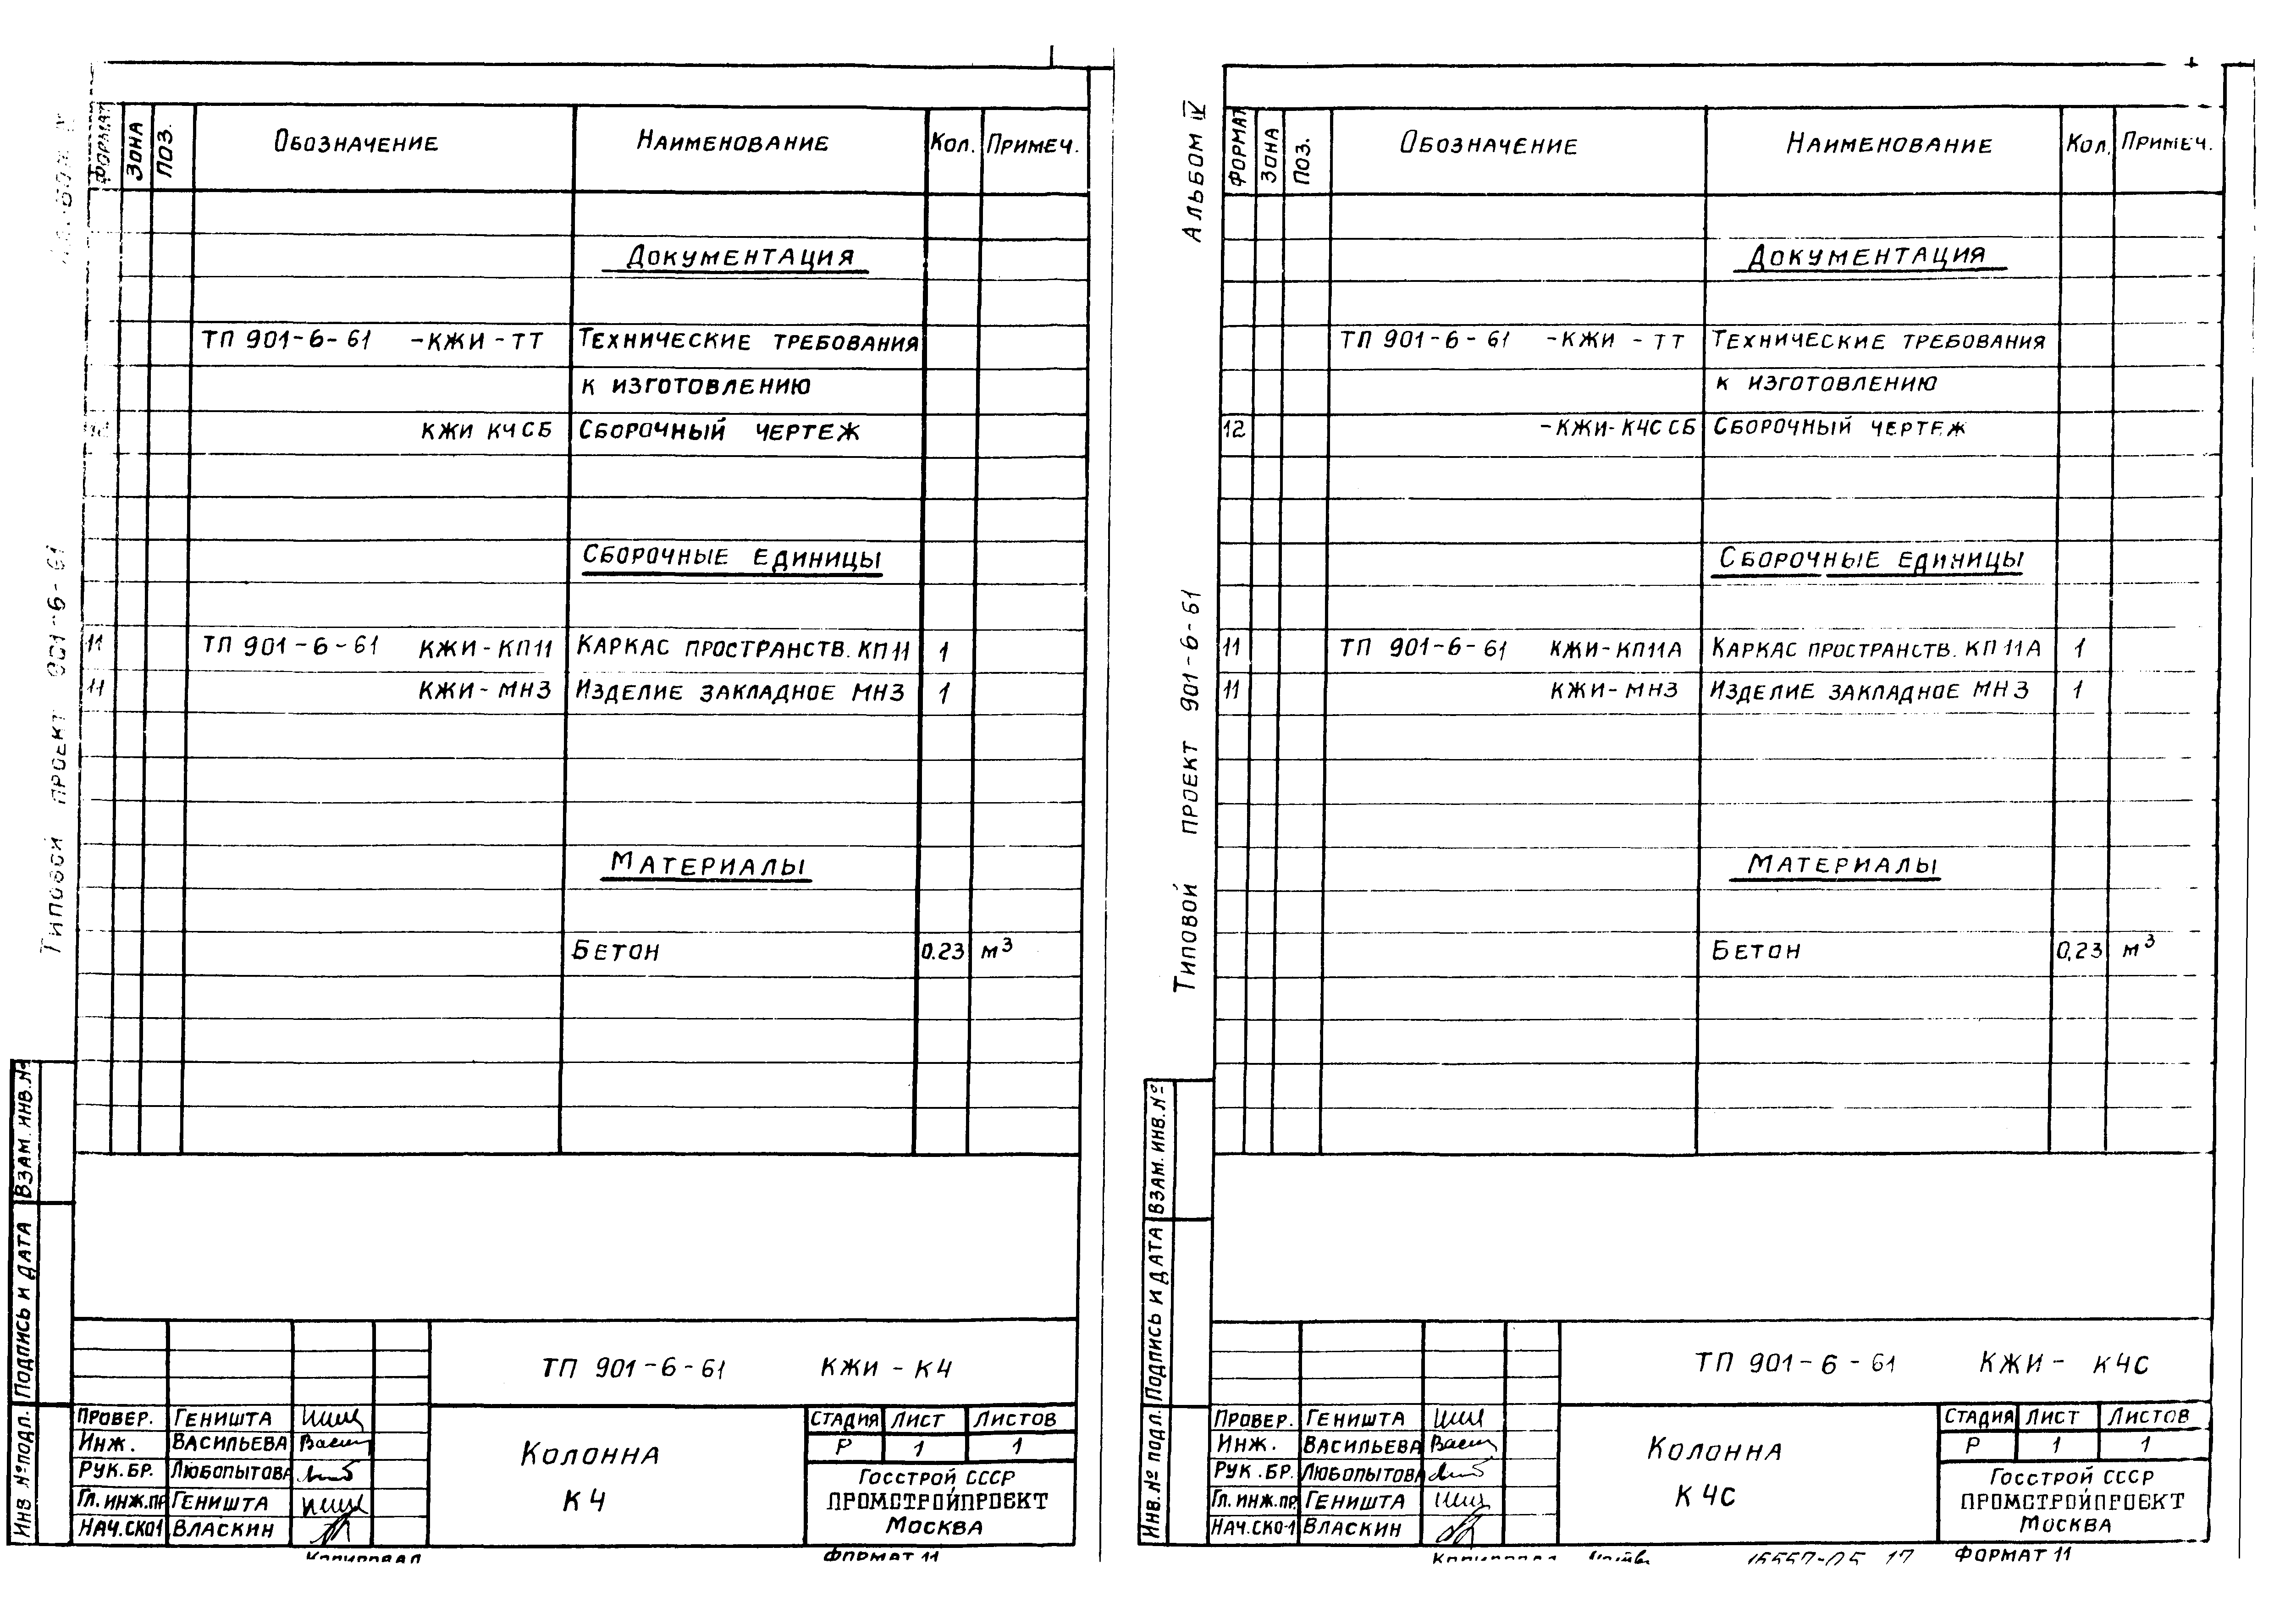 ФОРМАТ ЗОНА ПОЗ. ОБОЗНАЧЕНИЕ НАИМЕНОВАНИЕ КОЛ. ПРИМЕЧ.
ДОКУМЕНТАЦИЯ
ТП 901-6-61 -КЖИ-ТТ ТЕХНИЧЕСКИЕ ТРЕБОВАНИЯ
К ИЗГОТОВЛЕНИЮ
КЖИ К4СБ СБОРОЧНЫЙ ЧЕРТЕЖ
СБОРОЧНЫЕ ЕДИНИЦЫ
11 ТП 901-6-61 КЖИ-КП11 КАРКАС ПРОСТРАНСТВ. КП11 1
11 КЖИ-МН3 ИЗДЕЛИЕ ЗАКЛАДНОЕ МН3 1
МАТЕРИАЛЫ
БЕТОН 0.23 м³
ТИПОВОЙ ПРОЕКТ 901-6-61
ВЗАМ. ИНВ. №
ПОДПИСЬ И ДАТА
ИНВ № ПОДЛ.
ТП 901-6-61 КЖИ-К4
ПРОВЕР. ГЕНИШТА
ИНЖ. ВАСИЛЬЕВА
РУК. БР. ЛЮБОПЫТОВА
ГЛ. ИНЖ. ПР ГЕНИШТА
НАЧ. СКО1 ВЛАСКИН
КОЛОННА
К4
СТАДИЯ ЛИСТ ЛИСТОВ
Р 1 1
ГОССТРОЙ СССР
ПРОМСТРОЙПРОЕКТ
МОСКВА
КОПИРОВАЛ ФОРМАТ 11
АЛЬБОМ IV
ФОРМАТ ЗОНА ПОЗ. ОБОЗНАЧЕНИЕ НАИМЕНОВАНИЕ КОЛ. ПРИМЕЧ.
ДОКУМЕНТАЦИЯ
ТП 901-6-61 -КЖИ-ТТ ТЕХНИЧЕСКИЕ ТРЕБОВАНИЯ
К ИЗГОТОВЛЕНИЮ
12 -КЖИ-К4С СБ СБОРОЧНЫЙ ЧЕРТЕЖ
СБОРОЧНЫЕ ЕДИНИЦЫ
11 ТП 901-6-61 КЖИ-КП11А КАРКАС ПРОСТРАНСТВ. КП11А 1
11 КЖИ-МН3 ИЗДЕЛИЕ ЗАКЛАДНОЕ МН3 1
МАТЕРИАЛЫ
БЕТОН 0,23 м³
ТИПОВОЙ ПРОЕКТ 901-6-61
ВЗАМ. ИНВ. №
ПОДПИСЬ И ДАТА
ИНВ. № ПОДЛ.
ТП 901-6-61 КЖИ- К4С
ПРОВЕР. ГЕНИШТА
ИНЖ. ВАСИЛЬЕВА
РУК. БР. ЛЮБОПЫТОВА
ГЛ. ИНЖ. ПР. ГЕНИШТА
НАЧ. СКО-1 ВЛАСКИН
КОЛОННА
К4С
СТАДИЯ ЛИСТ ЛИСТОВ
Р 1 1
ГОССТРОЙ СССР
ПРОМСТРОЙПРОЕКТ
МОСКВА
КОПИРОВАЛ 16557-05 17 ФОРМАТ 11